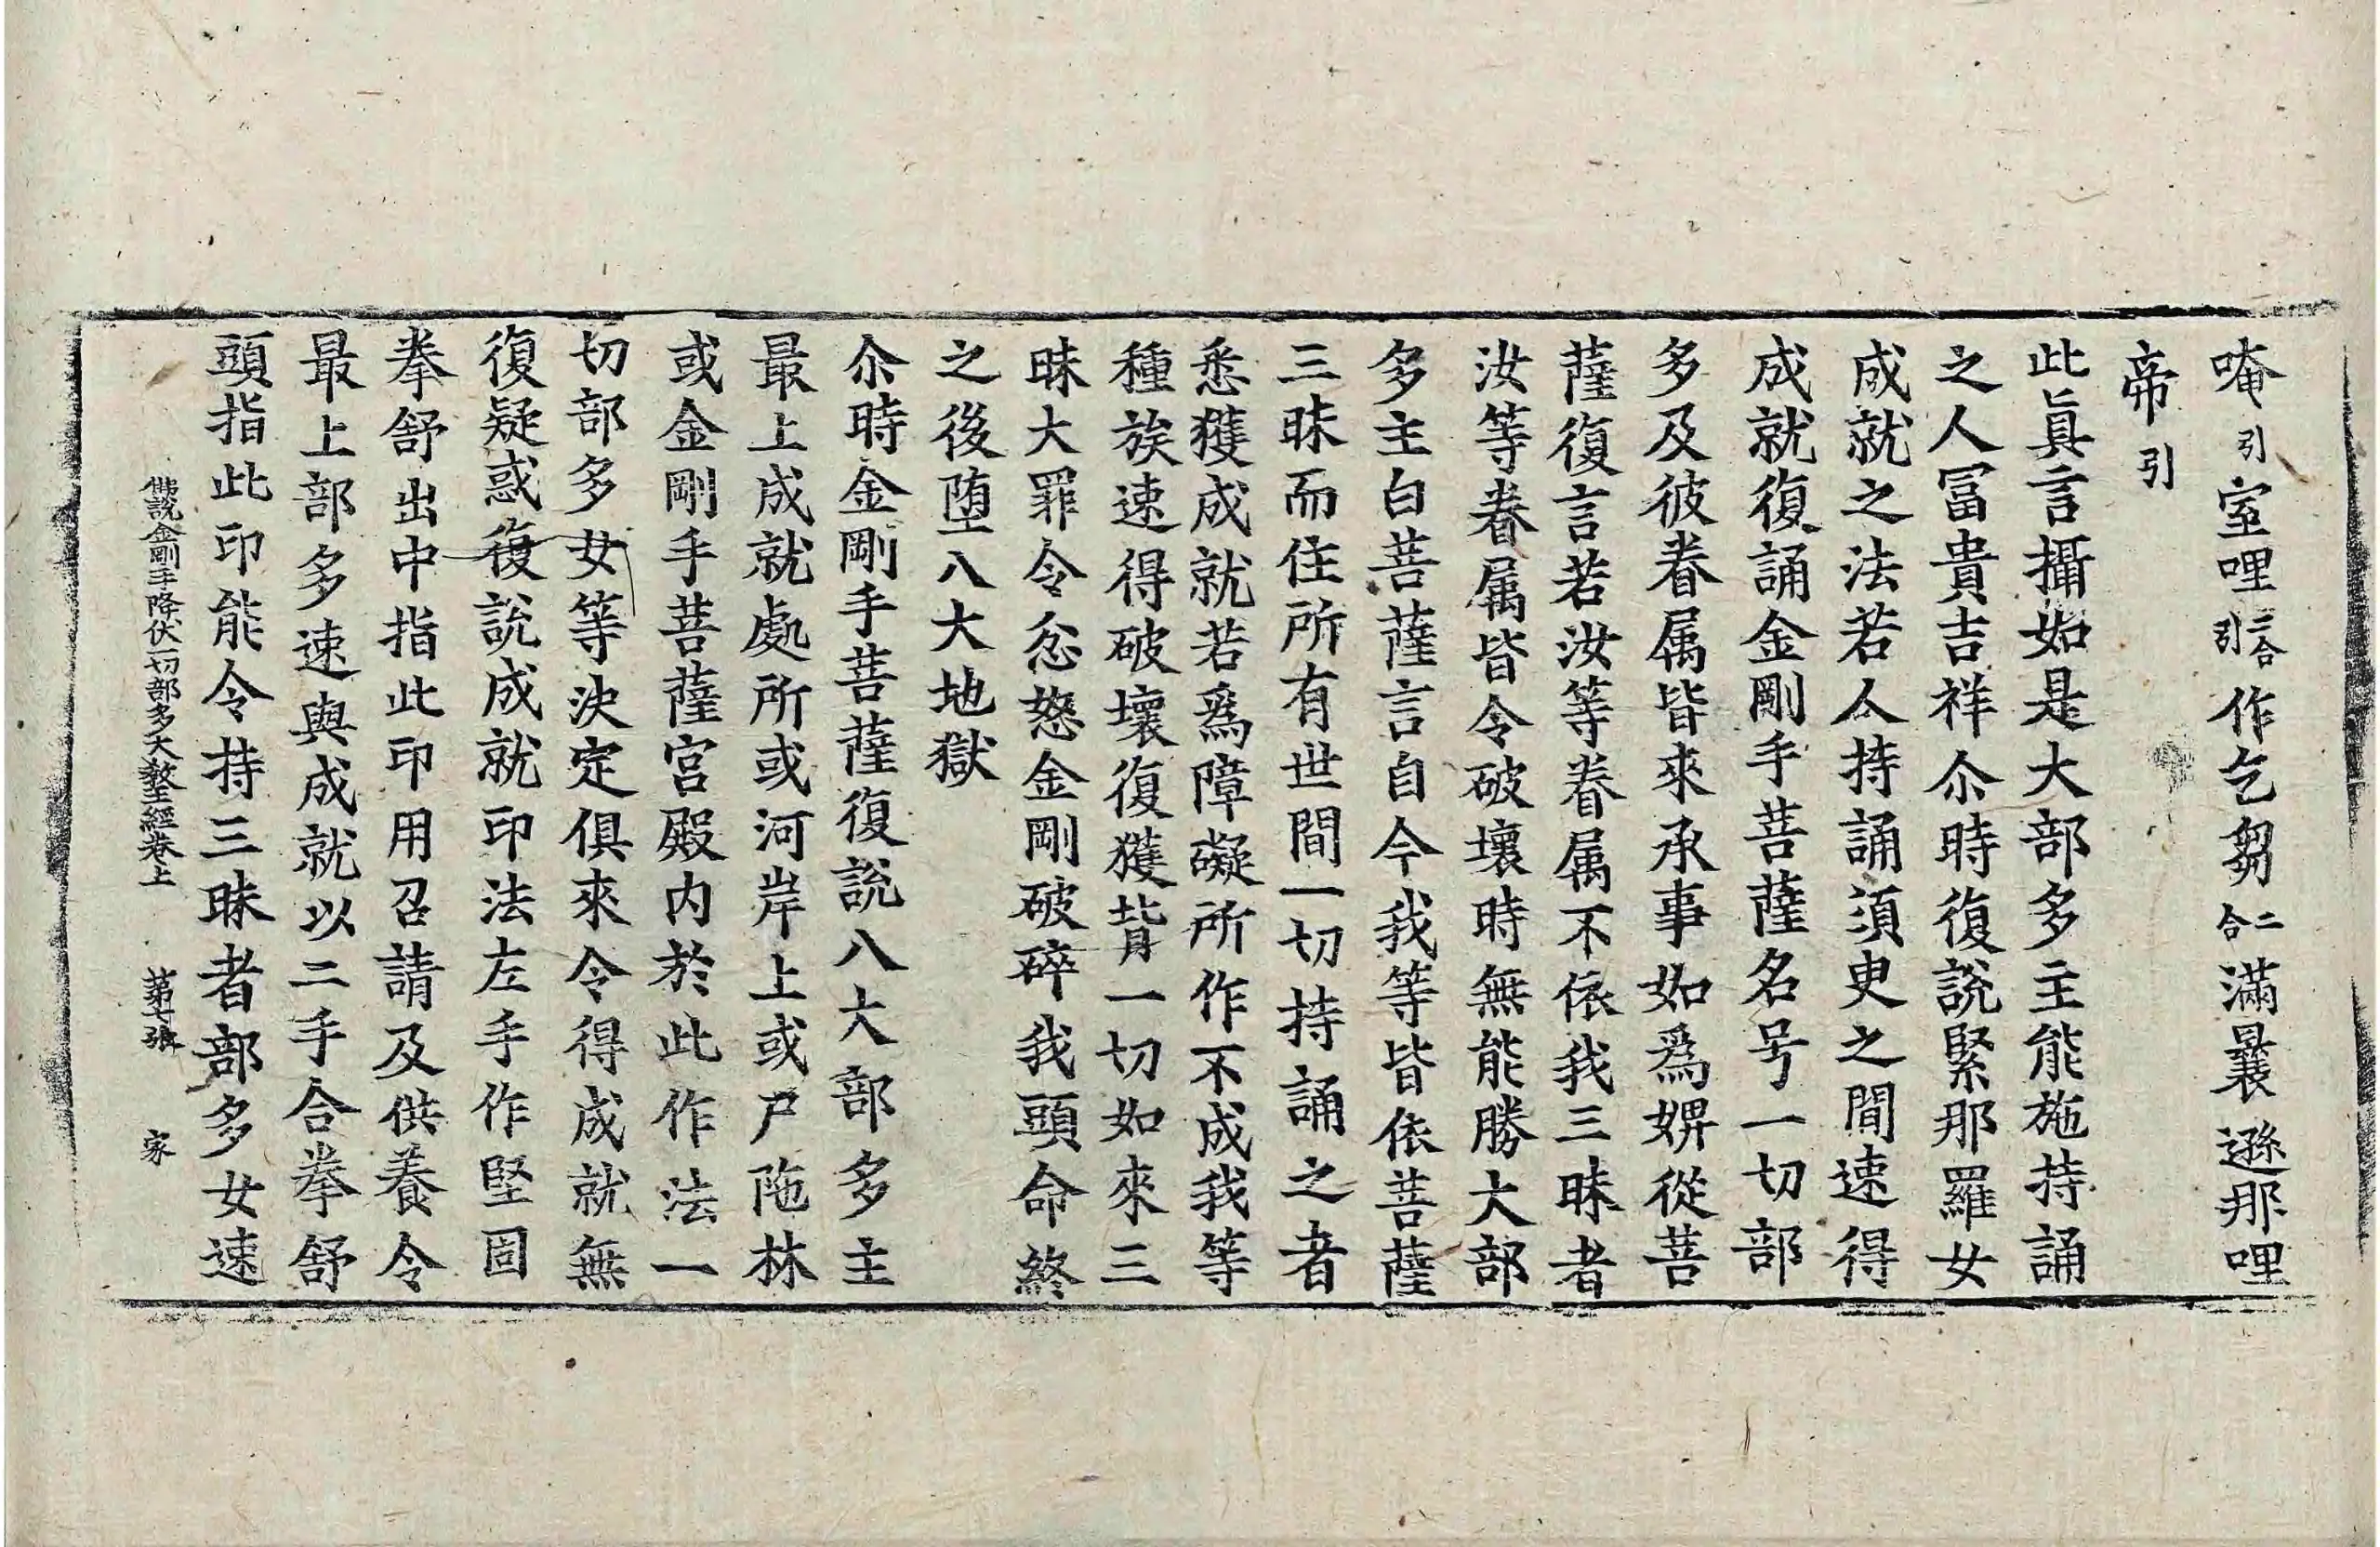 唵引室哩二合引作乞芻二合滿曩遜那哩
帝引
此眞言攝如是大部多主能施持誦
之人冨貴吉祥尒時復說緊那羅女
成就之法若人持誦須臾之間速得
成就復誦金剛手菩薩名号一切部
多及彼眷属皆來承事如爲婢從菩
薩復言若汝等眷属不依我三昧者
汝等眷属皆令破壞時無能勝大部
多主白菩薩言自今我等皆依菩薩
三昧而住所有世間一切持誦之者
悉獲成就若爲障礙所作不成我等
種族速得破壞復獲背一切如來三
昧大罪令忿怒金剛破碎我頭命終
之後堕八大地獄
尒時金剛手菩薩復說八大部多主
最上成就處所或河岸上或尸陁林
或金剛手菩薩宫殿内於此作法一
切部多女等決定俱來令得成就無
復疑惑復說成就印法左手作堅固
拳舒出中指此印用召請及供養令
最上部多速與成就以二手合拳舒
頭指此印能令持三昧者部多女速
佛說金剛手降伏一切部多大教王經卷上 第七張 家